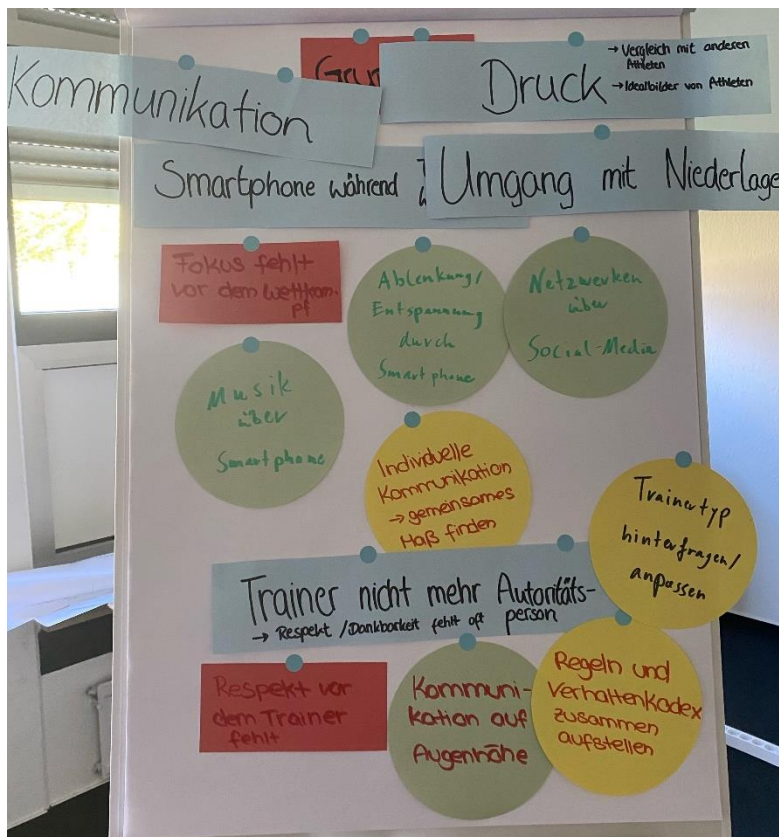 Kommunikation
Druck
→ Vergleich mit anderen
Athleten
→ Idealbilder von Athleten
Smartphone während
Umgang mit Niederlage
Fokus fehlt
vor dem Wettkam-
pf
Ablenkung/
Entspannung
durch
Smartphone
Netzwerken
über
Social-Media
Musik
über
Smartphone
Individuelle
Kommunikation
→ gemeinsames
Maß finden
Trainertyp
hinterfragen/
anpassen
Trainer nicht mehr Autoritäts-
→ Respekt / Dankbarkeit fehlt oft person
Respekt vor
dem Trainer
fehlt
Kommuni-
kation auf
Augenhöhe
Regeln und
Verhaltenkodex
zusammen
aufstellen